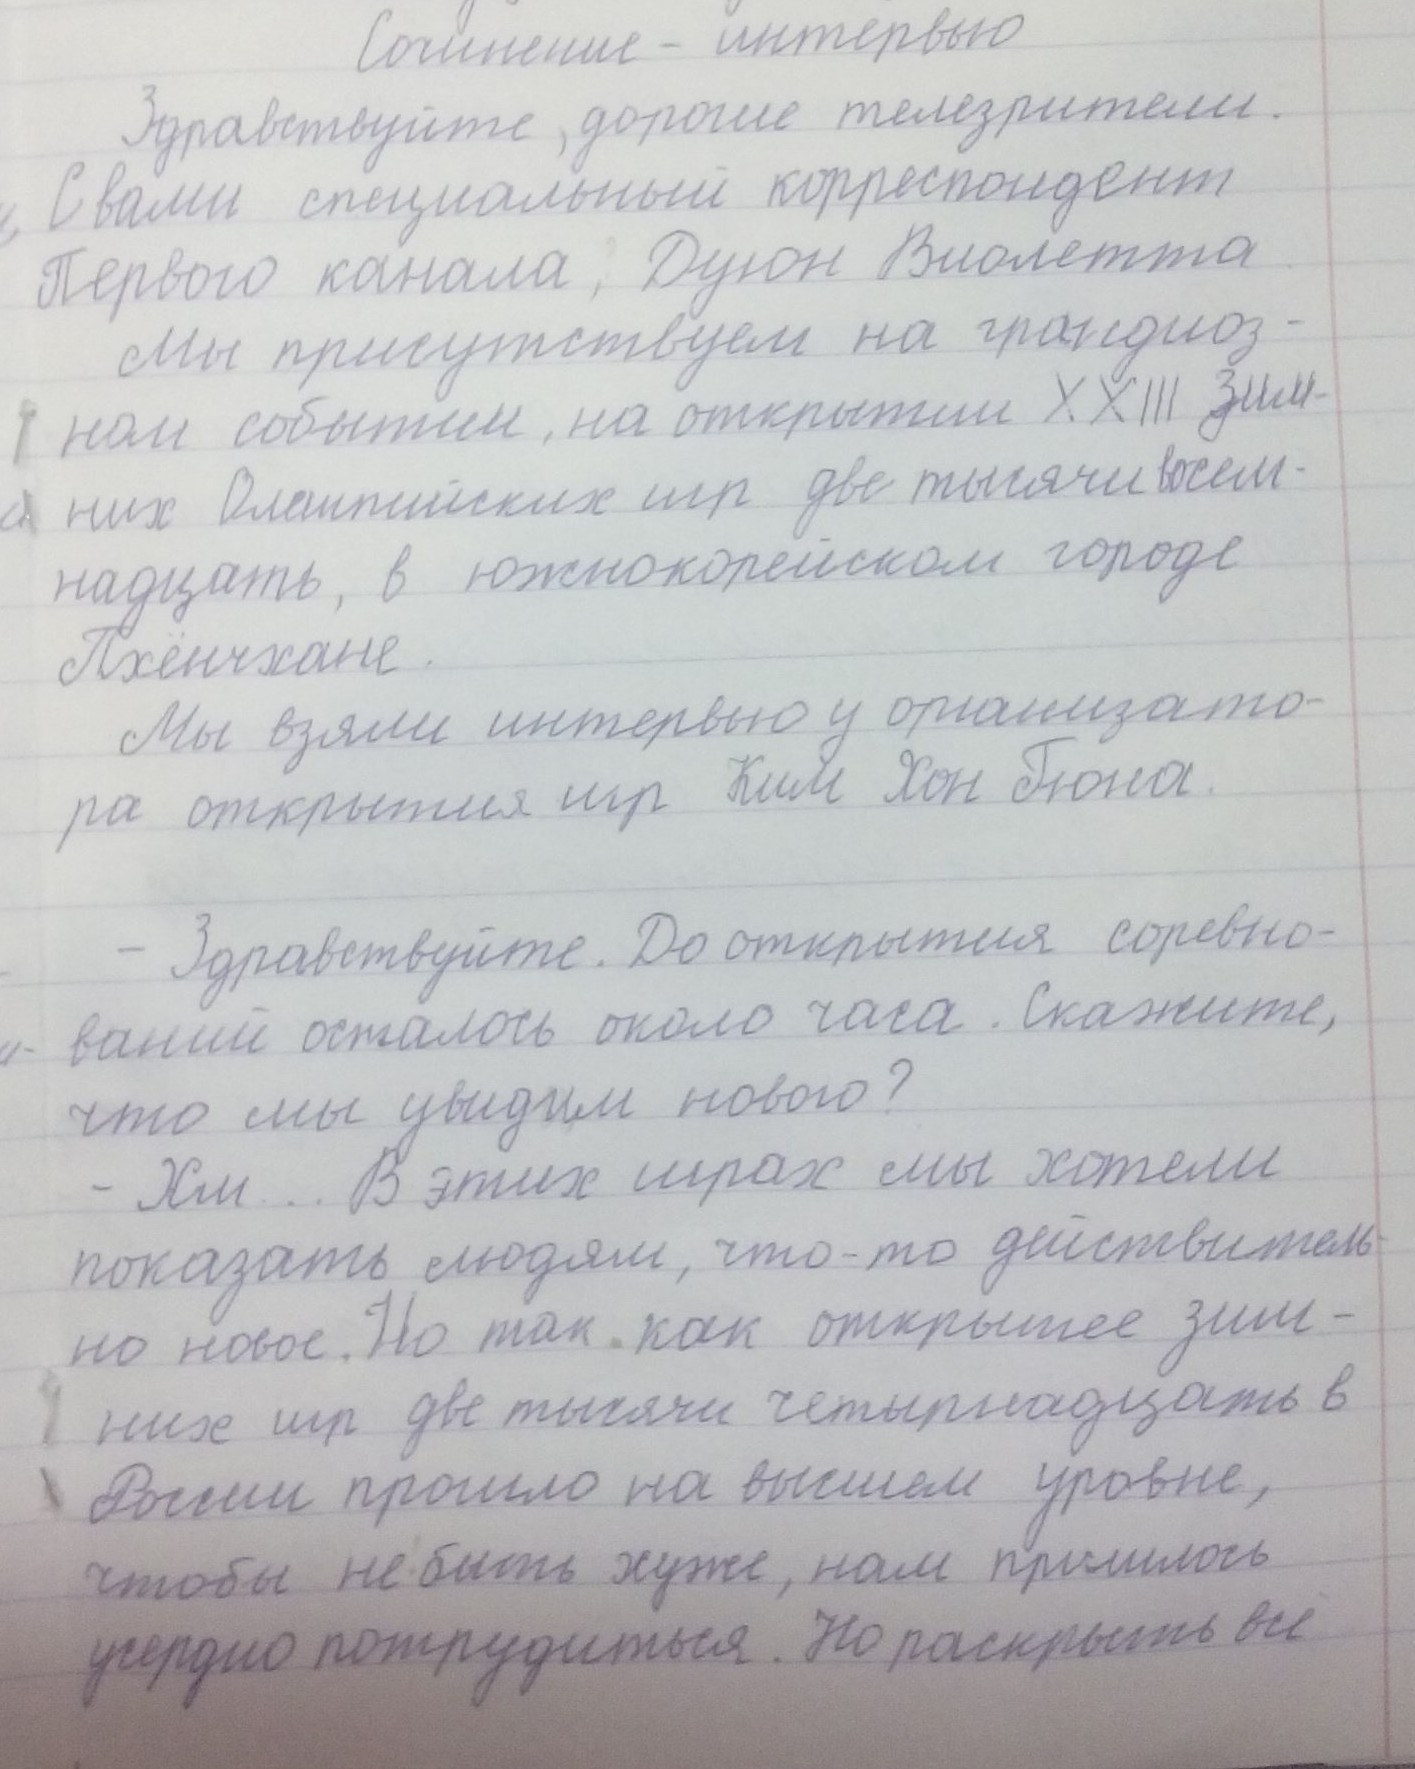 Сочинение - интервью
Здравствуйте, дорогие телезрители.
С вами специальный корреспондент
Первого канала, Дугон Виолетта
Мы присутствуем на грандиоз-
ном событии, на открытии XXIII Зим-
них Олимпийских игр две тысячи восем-
надцать, в южнокорейском городе
Пхёнчхане.
Мы взяли интервью у организато-
ра открытия игр Ким Хон Гюна.
- Здравствуйте. До открытия соревно-
ваний осталось около часа. Скажите,
что мы увидим нового?
- Хм... В этих играх мы хотели
показать людям, что-то действитель-
но новое. Но так как открытее зим-
них игр две тысячи четырнадцать в
России прошло на высшем уровне,
чтобы не быть хуже, нам пришлось
усердно потрудиться. Но раскрыть все